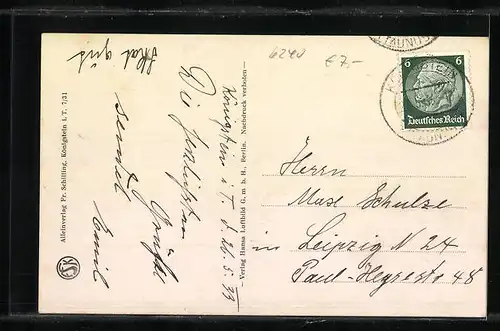 Skat gut
6240
€ 7.-
(TAUNUS)
6 6
Deutsches Reich
Königstein i. T. d. 26. 5. 33
Die herzlichsten
Grüße
sendet
Emil
Herrn
Max Schulze
in Leipzig N 24
Paul-Heysestr 48
Alleinverlag Fr. Schilling, Königstein i. T. 7/31
Verlag Hansa Luftbild G. m. b. H., Berlin. Nachdruck verboten